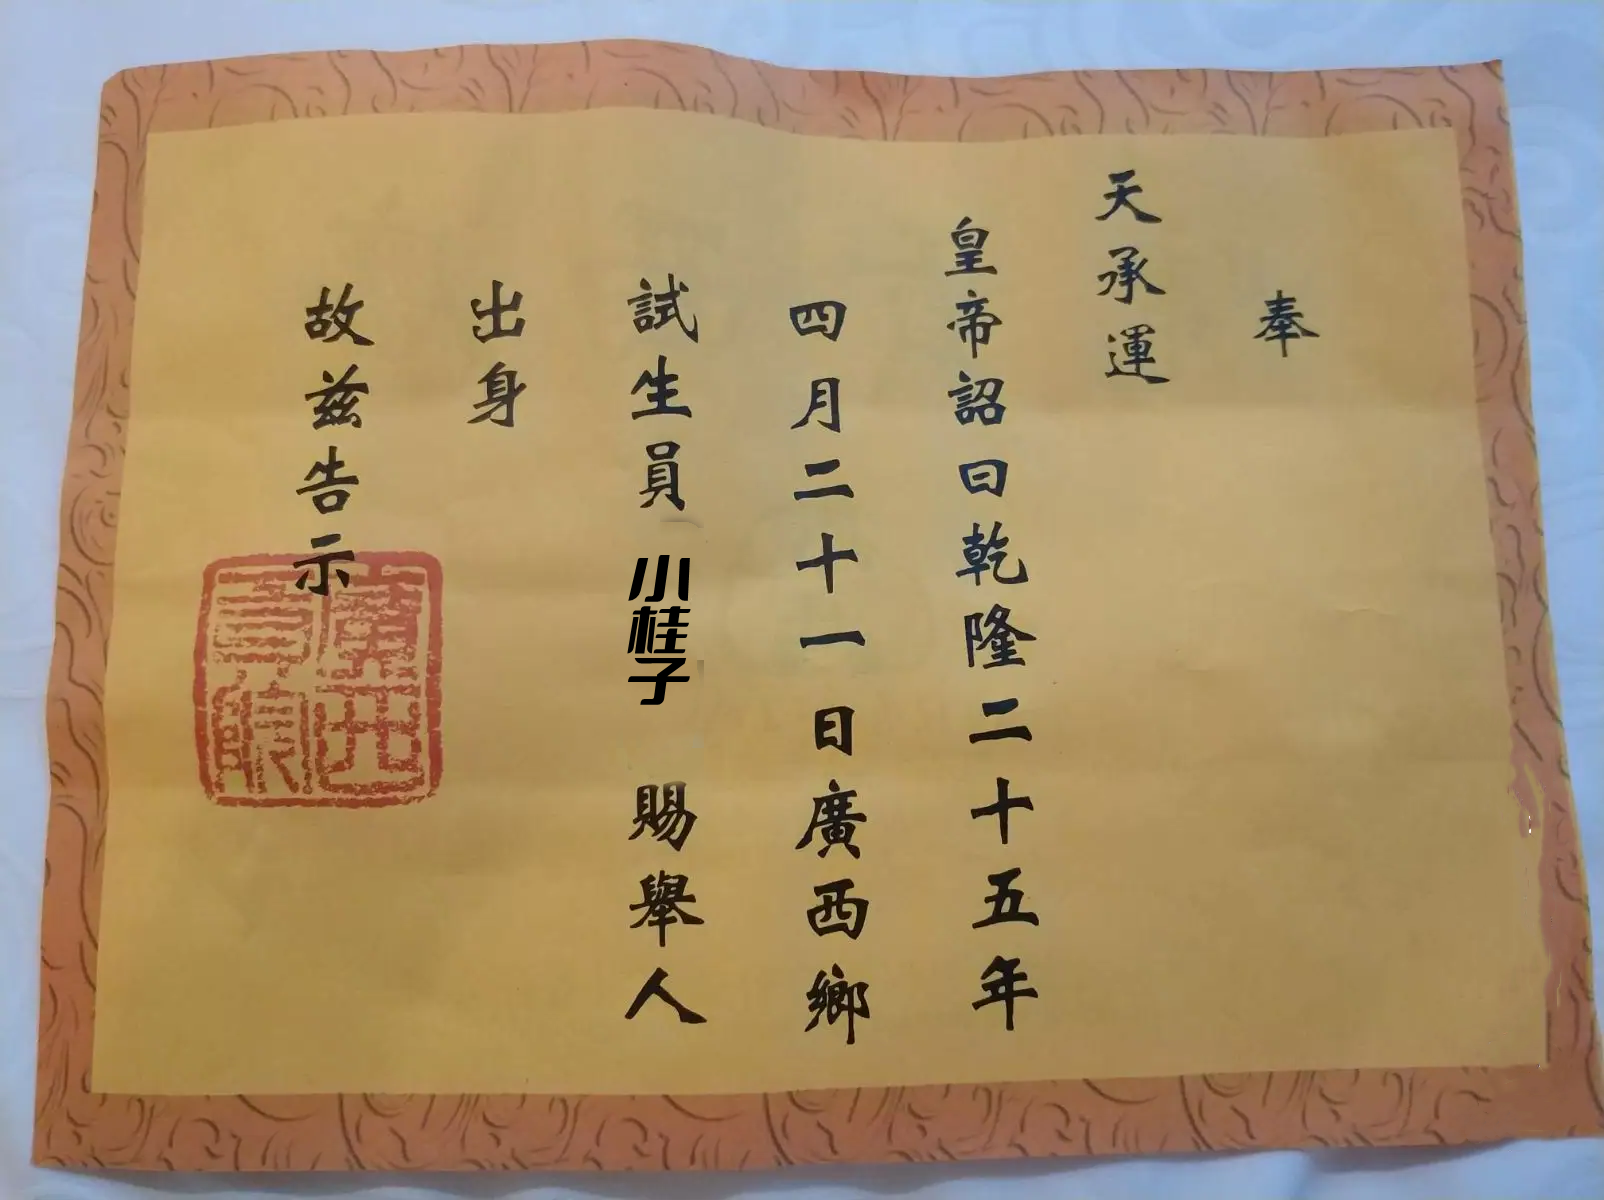 奉
天承運
皇帝詔曰乾隆二十五年
四月二十一日廣西鄉
試生員小桂子賜舉人
出身
故兹告示
廣西
貢院